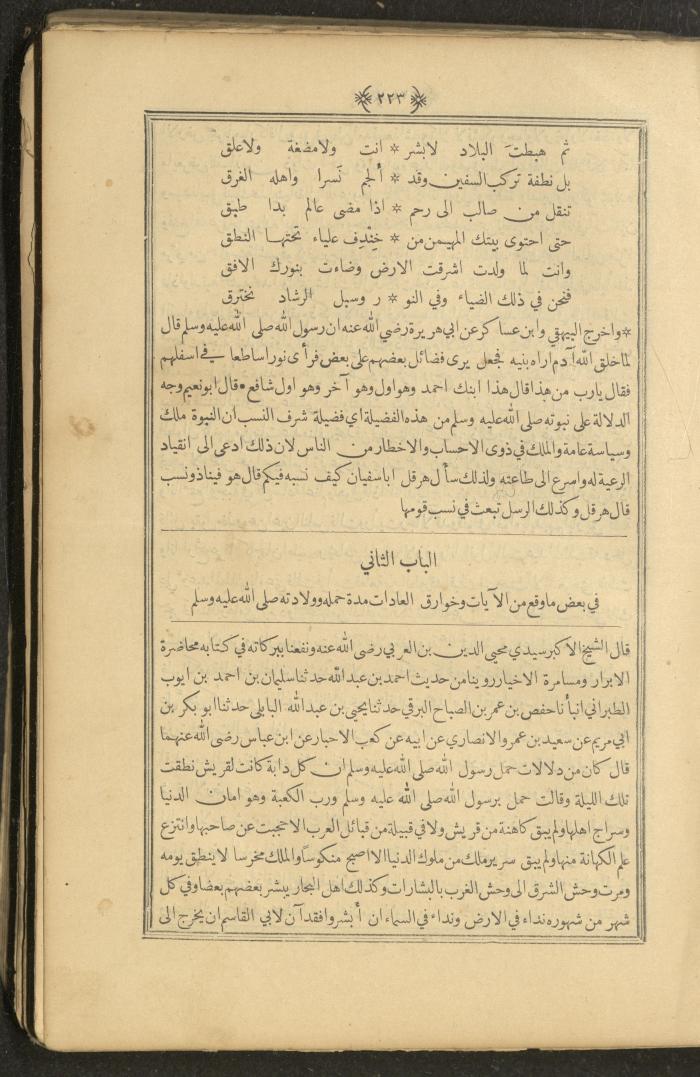 ٢٢٣
ثم هبطتَ البلاد لابشر * انت ولامضغة ولاعلق
بل نطفة تركب السفين وقد * ألجم نَسرا واهله الغرق
تنقل من صالب الى رحم * اذا مضى عالم بدا طبق
حتى احتوى بيتك المهيمن من * خِنْدِف علياء تحتها النطق
وانت لما ولدت اشرقت الارض وضاءت بنورك الافق
فنحن في ذلك الضياء وفي النو * ر وسبل الرشاد نخترق
* واخرج البيهقي وابن عساكر عن ابي هريرة رضي الله عنه ان رسول الله صلى الله عليه وسلم قال
لما خلق الله آدم اراه بنيه فجعل يرى فضائل بعضهم على بعض فرأى نورا ساطعا في اسفلهم
فقال يارب من هذا قال هذا ابنك احمد وهو اول وهو آخر وهو اول شافع * قال ابو نعيم وجه
الدلالة على نبوته صلى الله عليه وسلم من هذه الفضيلة اي فضيلة شرف النسب ان النبوة ملك
وسياسة عامة والملك في ذوي الاحساب والاخطار من الناس لان ذلك ادعى الى انقياد
الرعية له واسرع الى طاعته ولذلك سأل هرقل اباسفيان كيف نسبه فيكم قال هو فينا ذو نسب
قال هرقل وكذلك الرسل تبعث في نسب قومها
الباب الثاني
في بعض ماوقع من الآيات وخوارق العادات مدة حمله وولادته صلى الله عليه وسلم
قال الشيخ الاكبر سيدي محيي الدين بن العربي رضى الله عنه ونفعنا ببركاته في كتابه محاضرة
الابرار ومسامرة الاخيار روينا من حديث احمد بن عبد الله حدثنا سليمان بن احمد بن ايوب
الطبراني انبأنا حفص بن عمر بن الصباح البرقي حدثنا يحيى بن عبد الله البابلي حدثنا ابو بكر بن
ابي مريم عن سعيد بن عمرو الانصاري عن ابيه عن كعب الاحبار عن ابن عباس رضى الله عنهما
قال كان من دلالات حمل رسول الله صلى الله عليه وسلم ان كل دابة كانت لقريش نطقت
تلك الليلة وقالت حمل برسول الله صلى الله عليه وسلم ورب الكعبة وهو امان الدنيا
وسراج اهلها ولم يبق كاهنة من قريش ولا في قبيلة من قبائل العرب الا حجبت عن صاحبها وانتزع
علم الكهانة منها ولم يبق سرير ملك من ملوك الدنيا الا اصبح منكوسًا والملك مخرسا لا ينطق يومه
ومرت وحش الشرق الى وحش الغرب بالبشارات وكذلك اهل البحار يبشر بعضهم بعضا وفي كل
شهر من شهوره نداء في الارض ونداء في السماء ان أبشروا فقد آن لابي القاسم ان يخرج الى